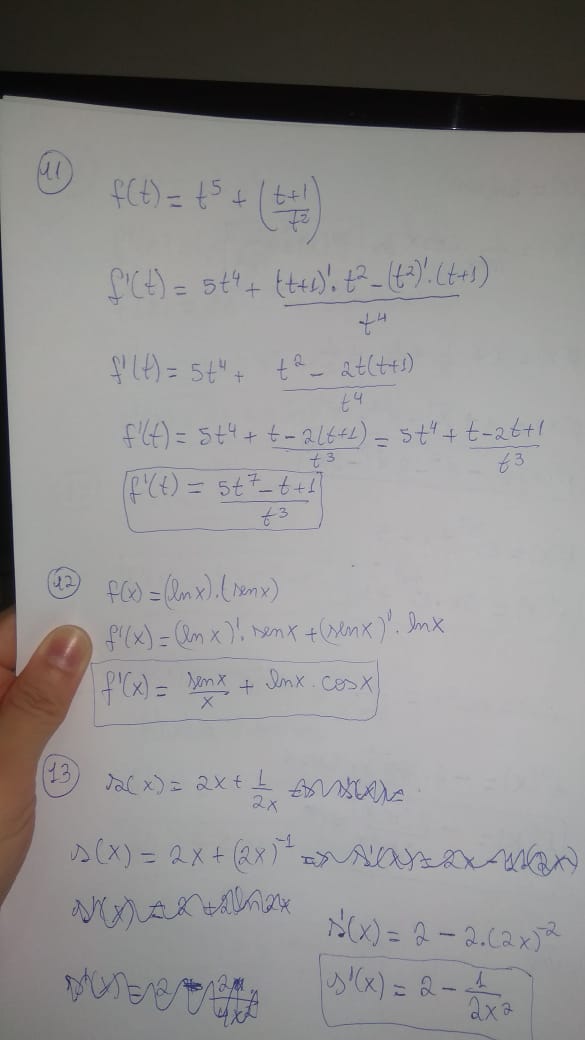 11
f(t) = t⁵ + ((t+1)/t²)
f'(t) = 5t⁴ + ((t+1)'. t² - (t²)'.(t+1))/t⁴
f'(t) = 5t⁴ + (t² - 2t(t+1))/t⁴
f'(t) = 5t⁴ + (t-2(t+1))/t³ = 5t⁴ + (t-2t+1)/t³
f'(t) = (5t⁷-t+1)/t³
12
f(x) = (ln x).(sen x)
f'(x) = (ln x)'. sen x + (sen x)'. ln x
f'(x) = sen x/x + ln x . cos x
13
s(x) = 2x + 1/2x
s(x) = 2x + (2x)⁻¹
s'(x) = 2 - 2.(2x)⁻²
s'(x) = 2 - 1/2x²